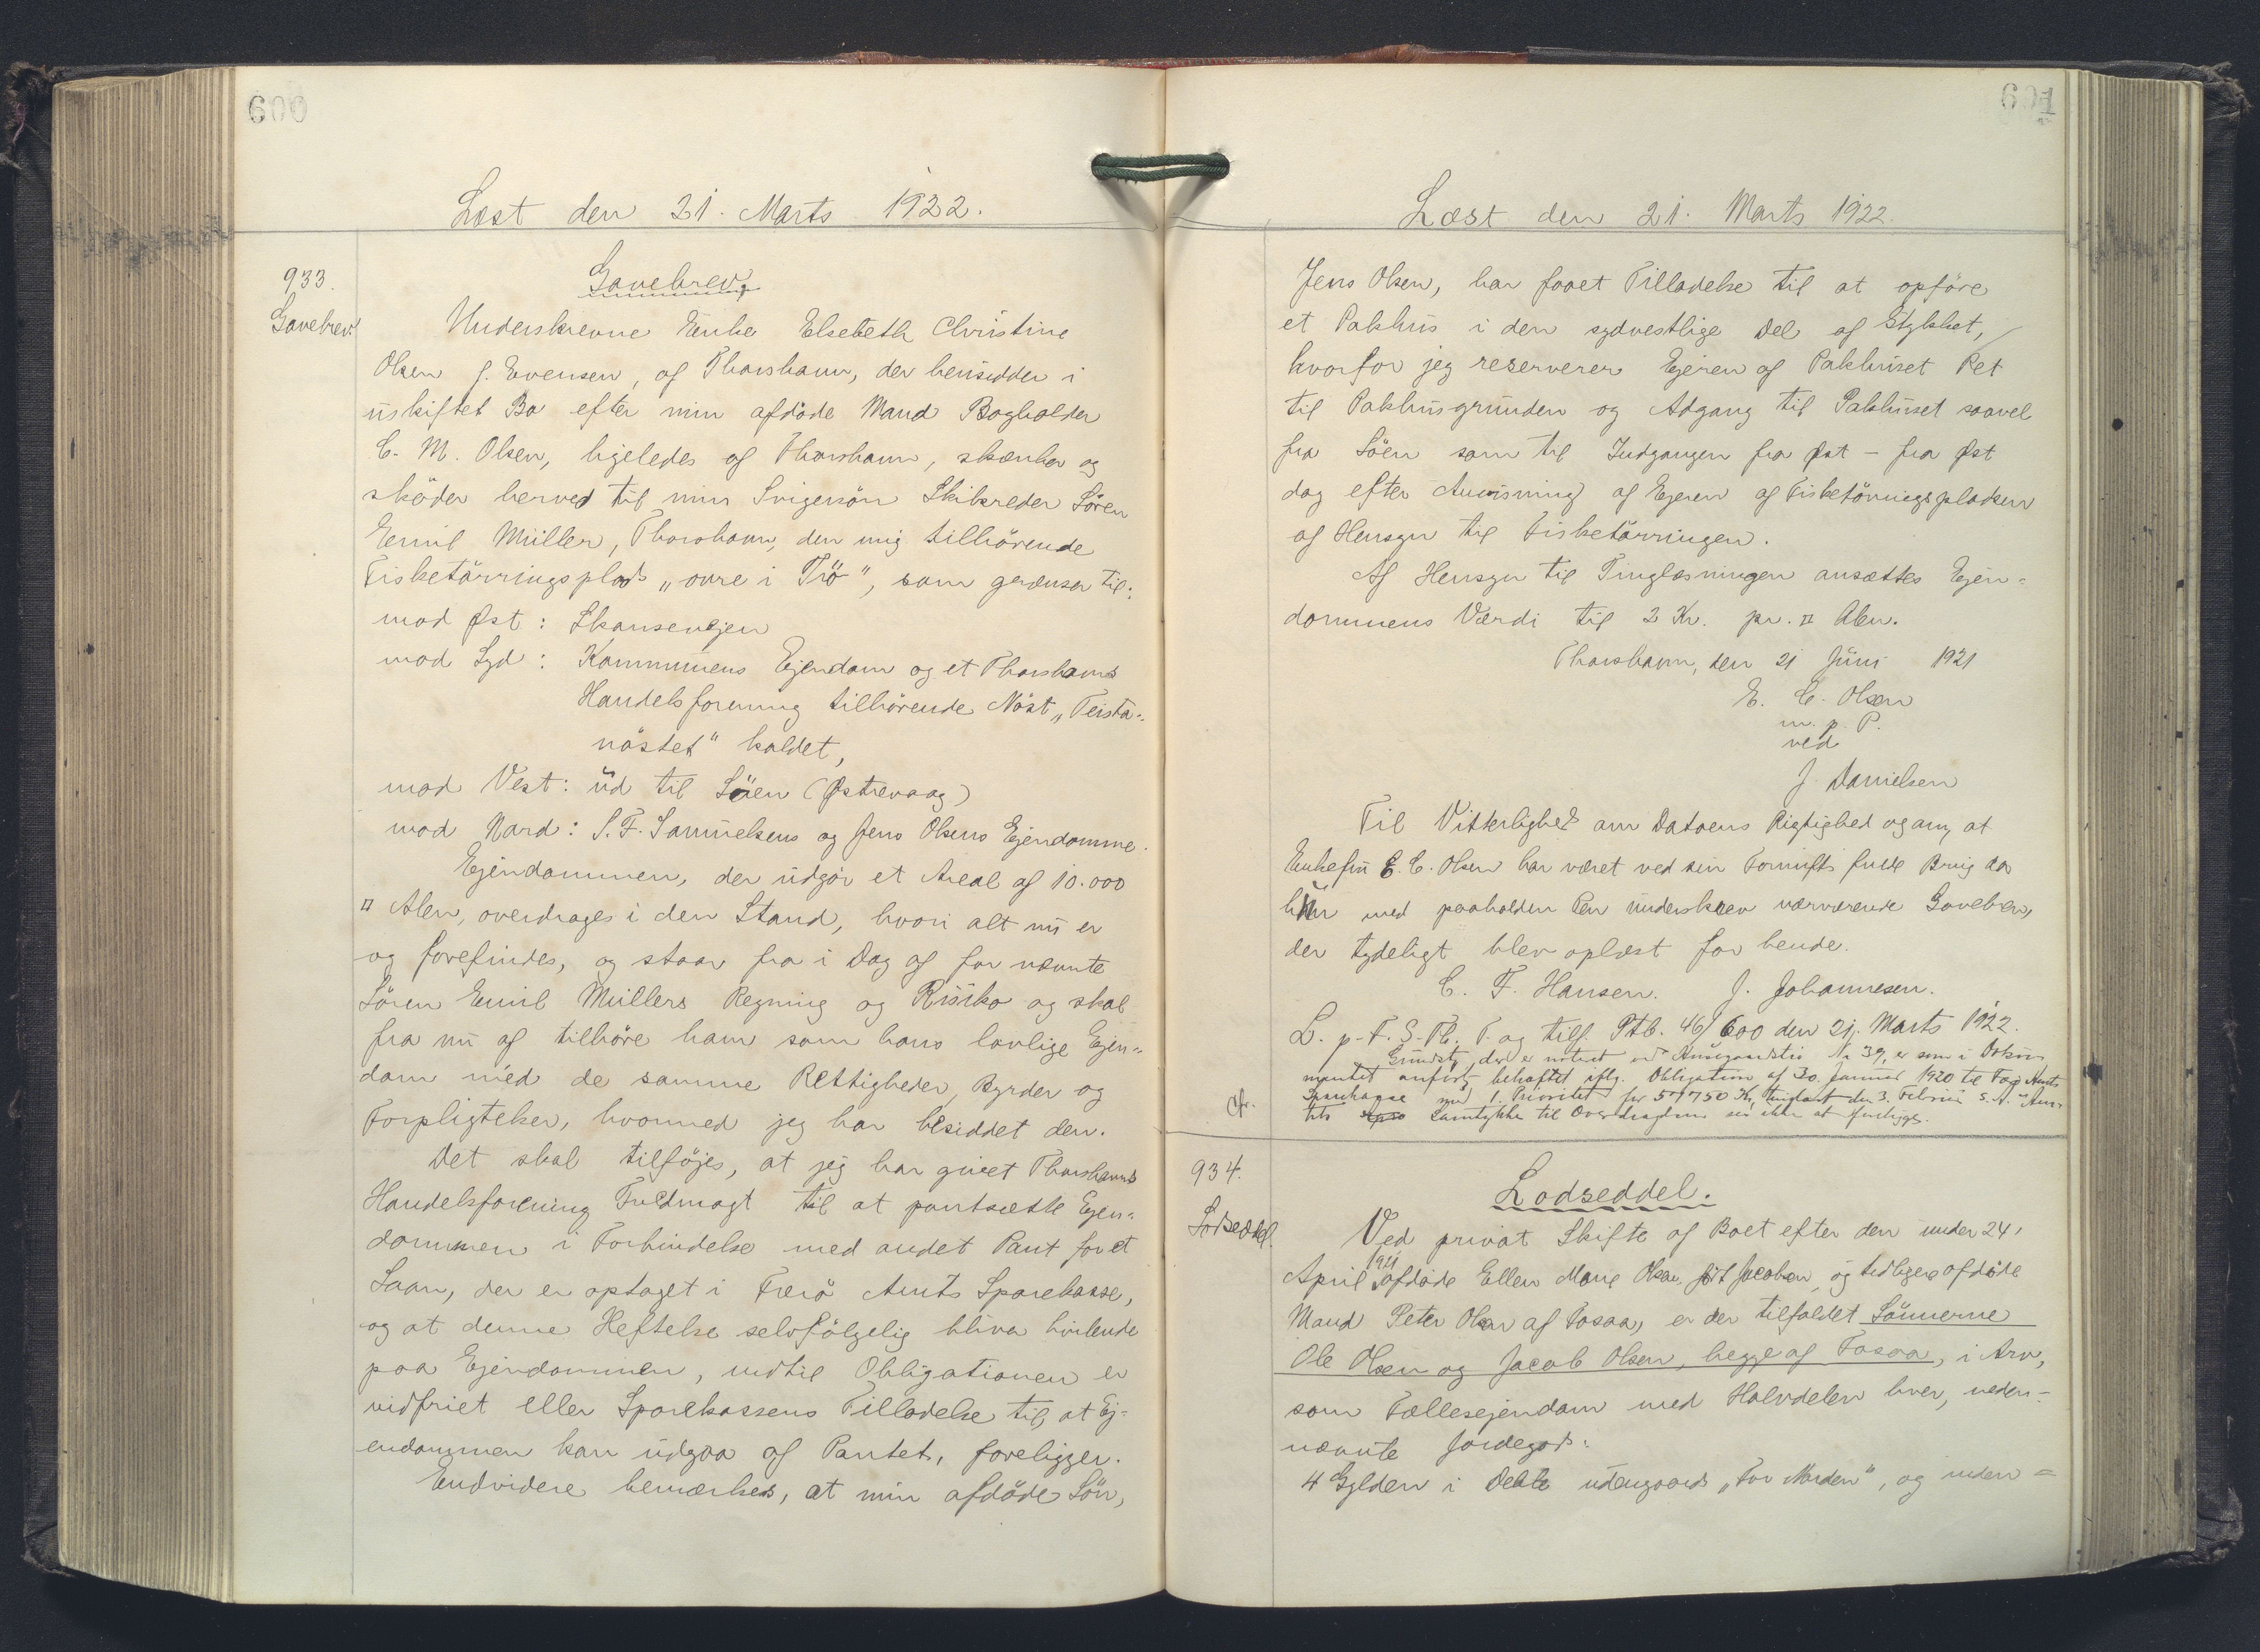 600
Læst den 21. Marts 1922.
933.
Gavebrev.
Gavebrev.
Underskrevne Enke Elsebeth Christine
Olsen f. Evensen, af Thorshavn, der hensidder i
uskiftet Bo efter min afdöde Mand Bogholder
C. M. Olsen, ligeledes af Thorshavn, skænker og
sköder herved til min Svigersön Skibsreder Sören
Emil Müller, Thorshavn, den mig tilhörende
Fisketörringsplads „ovre i Trö", som grænser til:
mod Øst: Skansevejen
mod Syd: Kommunens Ejendom og et Thorshavns
Handelsforening tilhörende Nöst „Teista-
nöstet" kaldet,
mod Vest: ud til Söen (Østrevaag)
mod Nord: S. F. Samuelsens og Jens Olsens Ejendomme.
Ejendommen, der udgör et Areal af 10.000
¤ Alen, overdrages i den Stand, hvori alt nu er
og forefindes, og staar fra i Dag af for nævnte
Sören Emil Müllers Regning og Risiko og skal
fra nu af tilhöre ham som hans lovlige Ejen-
dom med de samme Rettigheder, Byrder og
Forpligtelser, hvormed jeg har besiddet den.
Det skal tilföjes, at jeg har givet Thorshavns
Handelsforening Fuldmagt til at pantsætte Ejen-
dommen i Forbindelse med andet Pant for et
Laan, der er optaget i Færö Amts Sparekasse,
og at denne Heftelse selvfölgelig bliver hvilende
paa Ejendommen, indtil Obligationen er
indfriet eller Sparekassens Tilladelse til, at Ej-
endommen kan udgaa af Pantet, foreligger.
Endvidere bemærkes, at min afdöde Sön,
601
Læst den 21. Marts 1922.
Jens Olsen, har faaet Tilladelse til at opföre
et Pakhus i den sydvestlige Del af Stykket,
hvorfor jeg reserverer Ejeren af Pakhuset Ret
til Pakhusgrunden og Adgang til Pakhuset saavel
fra Söen som til Indgangen fra Øst - fra Øst
dog efter Anvisning af Ejeren af Fisketörringspladsen
af Hensyn til Fisketörringen.
Af Hensyn til Tinglæsningen ansættes Ejen-
dommens Værdi til 2 Kr. pr. ¤ Alen.
Thorshavn, den 21 Juni 1921
E. C. Olsen
m. p. P.
ved
J. Danielsen
Til Vitterlighed om Datoens Rigtighed og om, at
Enkefru E. C. Olsen har været ved sin Fornufts fulde Brug da
hun med paaholden Pen underskrev nærværende Gavebrev,
der tydeligt blev oplæst for hende.
C. F. Hansen. J. Johannesen.
L. p. F. S. Th. T. og tilf. Ptb. 46/600 den 21. Marts 1922.
Grundst, der er noteret ved No 39, er som i Doku-
mentet anfört behæftet iflg. Obligation af 30. Januar 1920 til Færö Amts
Sparekasse med 1. Prioritet for 57750 Kr, tinglæst den 3. Februar s. A. Am-
tets Samtykke til Overdragelsen ses ikke at foreligge.
Cfr.
934.
Lodseddel.
Lodseddel.
Ved privat Skifte af Boet efter den under 24'
April 1921 afdöde Ellen Marie Olsen, född Jacobsen, og tidligere afdöde
Mand Peter Olsen af Fosaa, er der tilfaldet Sönnerne
Ole Olsen og Jacob Olsen, begge af Fosaa, i Arv,
som Fællesejendom med Halvdelen hver, neden-
nævnte Jordegods:
4 Gylden i Deble udengaards „For Norden", og inden=